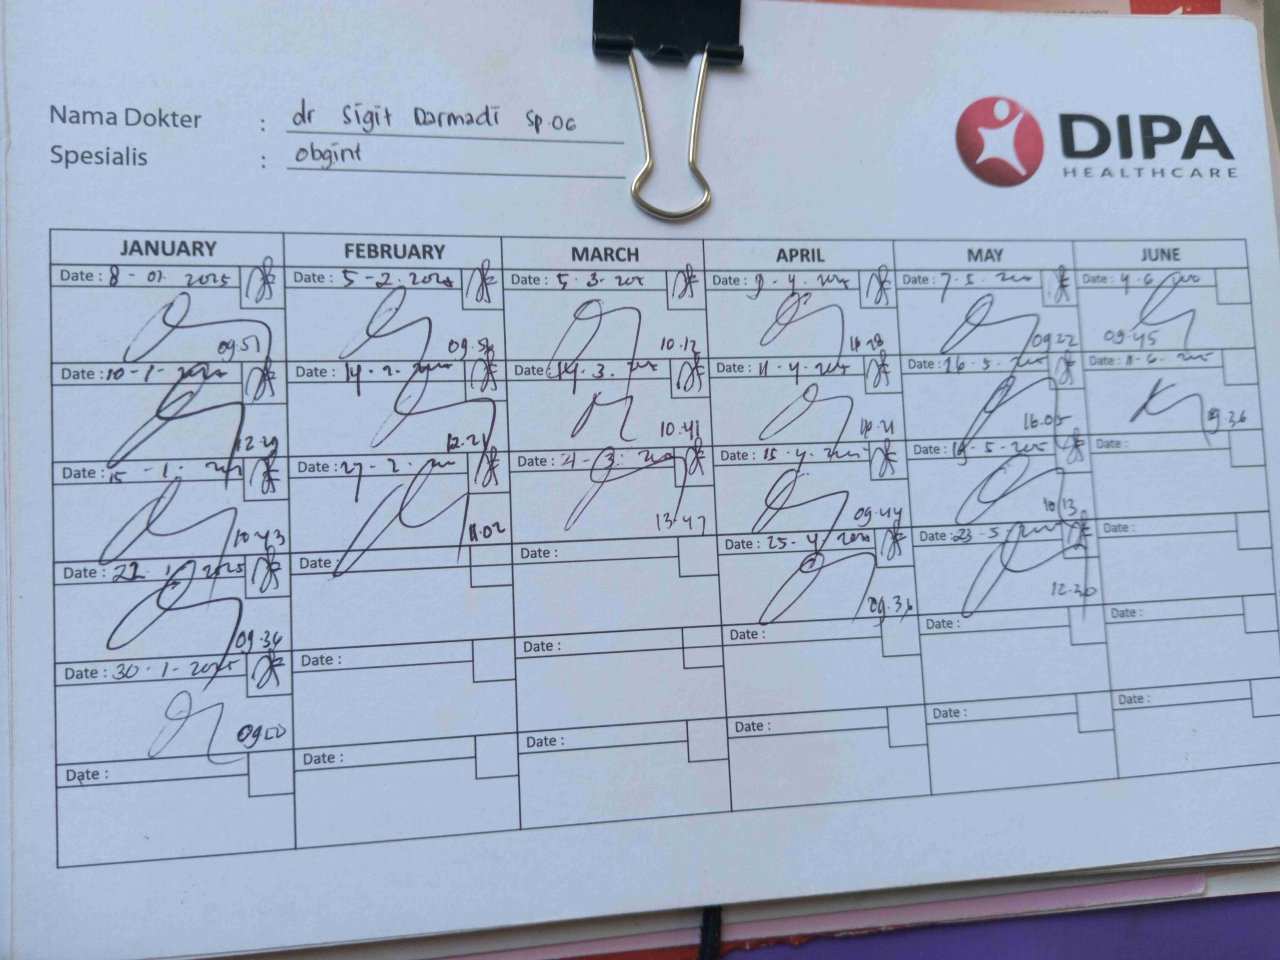 Nama Dokter : dr Sigit Darmadi Sp.OG
Spesialis : obgint
DIPA
HEALTHCARE
JANUARY FEBRUARY MARCH APRIL MAY JUNE
Date : 8 - 01 - 2025 Date : 5 - 2 - 2025 Date : 5 - 3 - Date : 9 - 4 - Date : 7 - 5 - Date : 4 - 6 -
09.51 10.12 09.22 09.45
Date : 10 - 1 - Date : 14 - 2 - Date : 14 - 3 - Date : 11 - 4 - Date : 16 - 5 - Date : 11 - 6 -
12.29 12.21 10.41 16.05 9.36
Date : 15 - 1 - Date : 27 - 2 - Date : Date : 15 - 4 - Date : 19 - 5 - Date :
10.43 11.02 13.47 09.44 10.13
Date : 22 - 1 - 2025 Date : Date : Date : 25 - 4 - Date : 23 - 5 - Date :
09.34 09.36 12.30
Date : 30 - 1 - 2025 Date : Date : Date : Date : Date :
09.00
Date : Date : Date : Date : Date : Date :